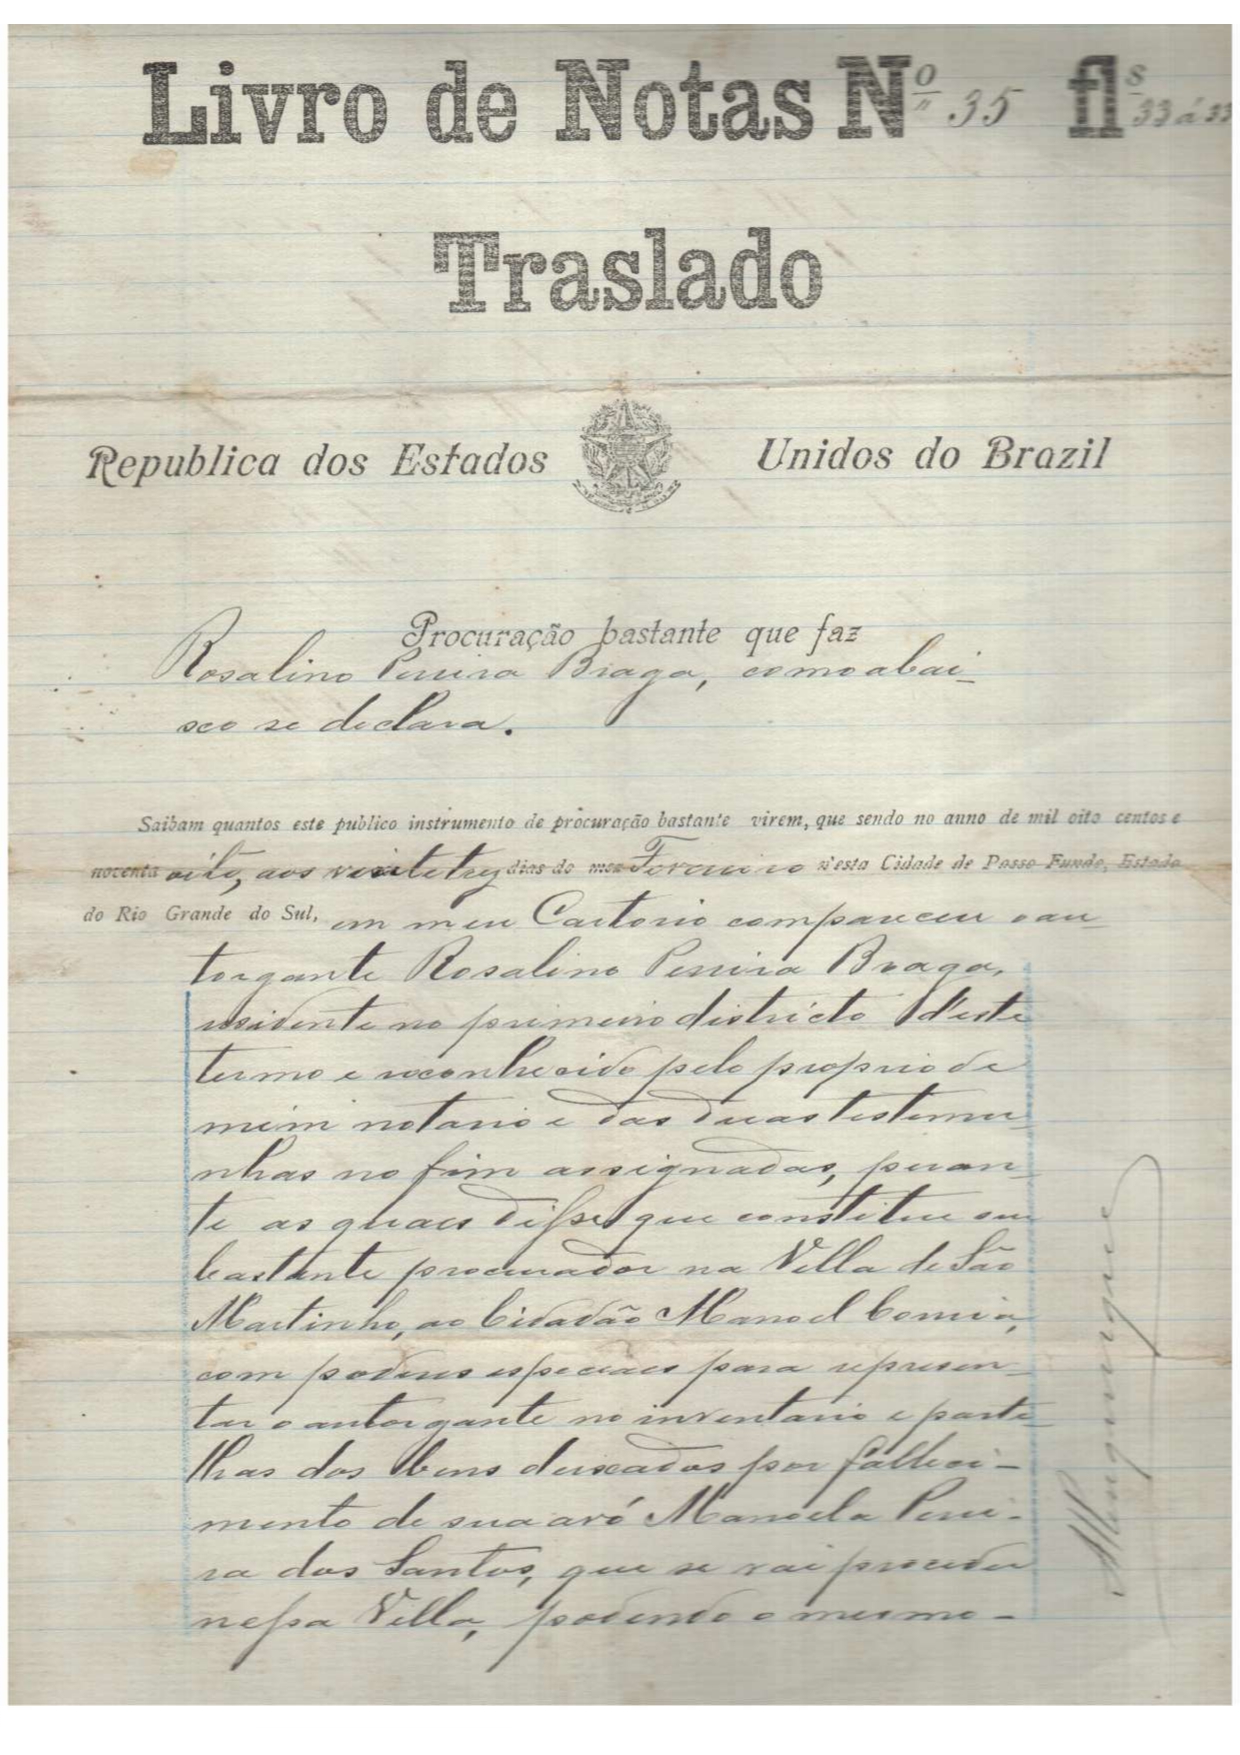 Livro de Notas Nº 35 fls 33 á 33
Traslado
Republica dos Estados Unidos do Brazil
Procuração bastante que faz
Rosalino Pereira Braga, como abai-
sco se declara.
Saibam quantos este publico instrumento de procuração bastante virem, que sendo no anno de mil oito centos e
noventa oito, aos vinte trez dias do mez Fevereiro n'esta Cidade de Passo Fundo, Estado
do Rio Grande do Sul, em meu Cartorio compareceu o au-
torgante Rosalino Pereira Braga,
residente no primeiro districto d'este
termo e reconhecido pelo proprio de
mim notario e das duas testemu-
nhas no fim assignadas, peran-
te as quaes disse que constitue seu
bastante procurador na Villa de São
Martinho, ao Cidadão Manoel Correia,
com poderes especiaes para represen-
tar o autorgante no inventario e parti
lhas dos bens deixados por falleci-
mento de sua avó Manoela Perei-
ra dos Santos, que se vai proceder
nessa Villa, podendo o mesmo-